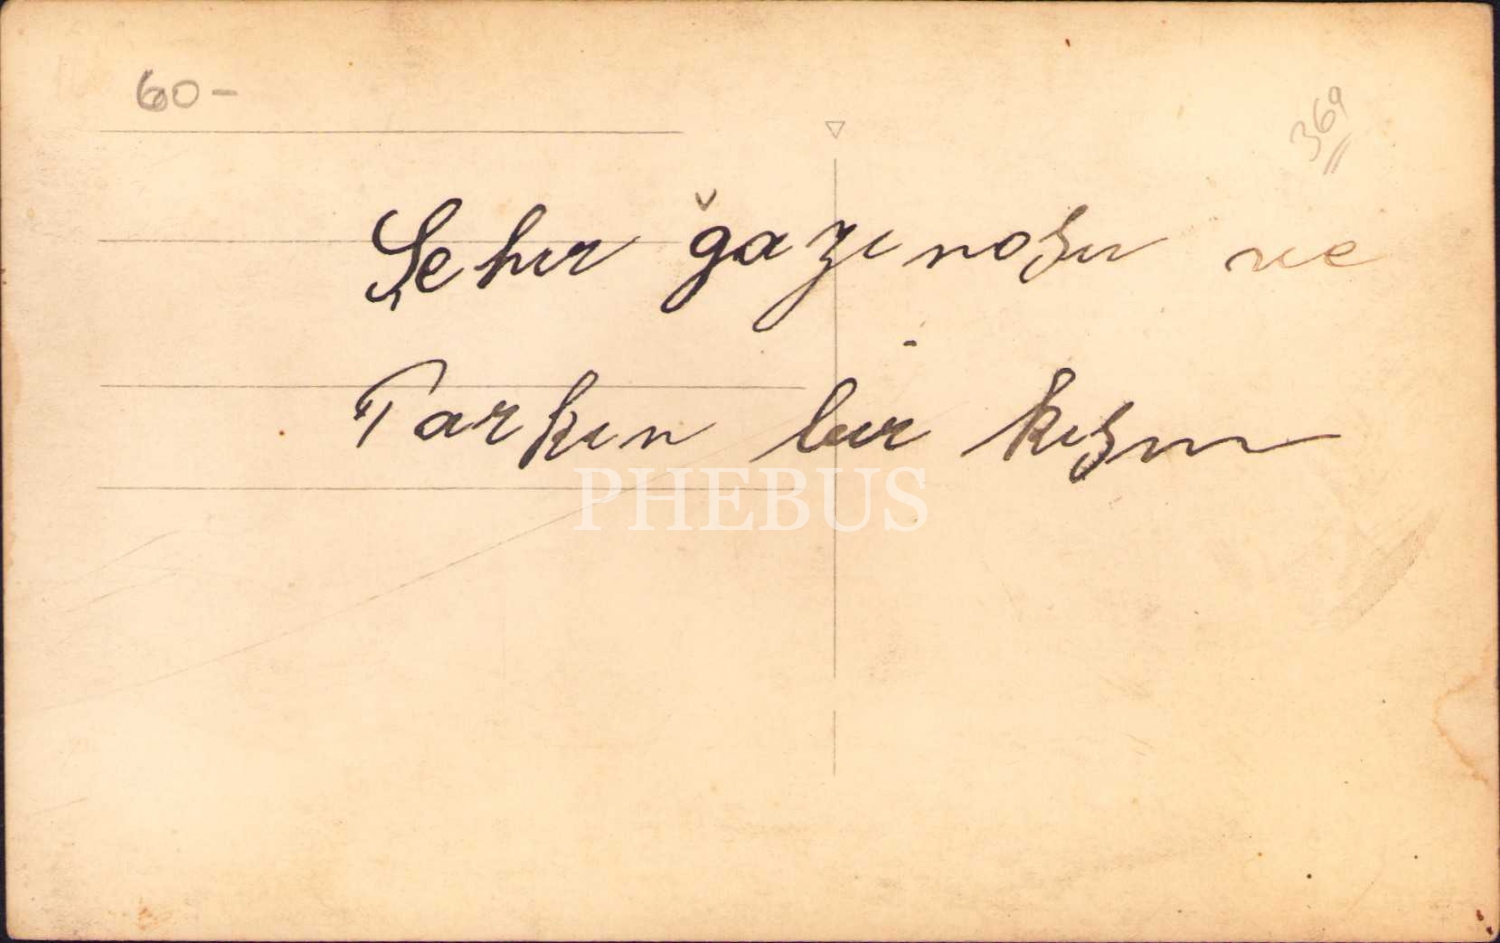 60-
369
Şehır ğazınosu ve
Parkın bir kısmı
PHEBUS